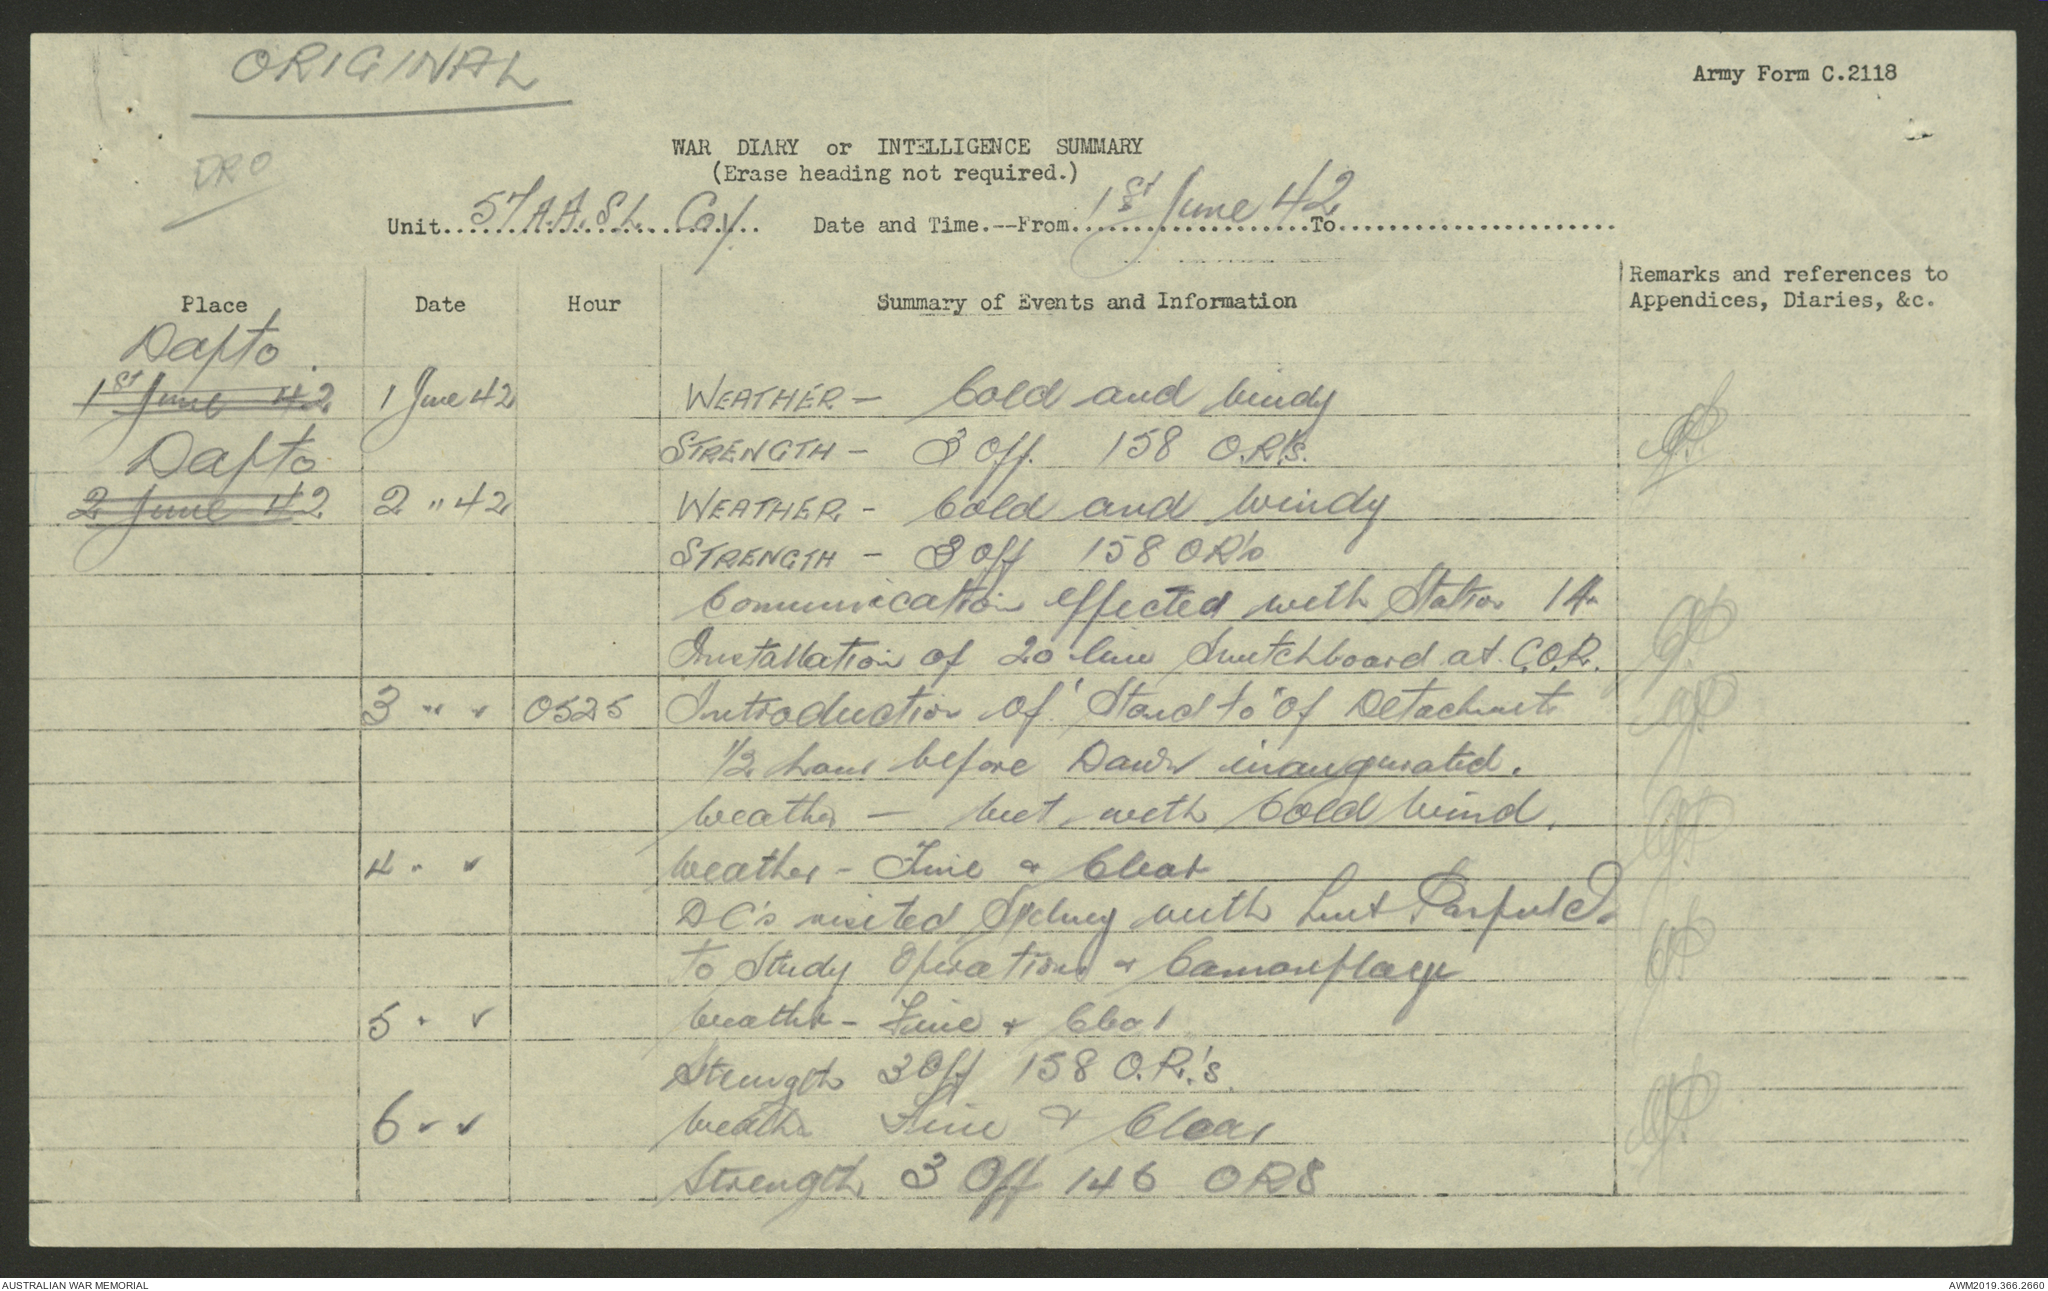 ORIGINAL
Army Form C.2118
DRO
WAR DIARY or INTELLIGENCE SUMMARY
(Erase heading not required.)
Unit...57 A.A. S.L. Coy... Date and Time.--From...1st June 42...To...
Place Date Hour Summary of Events and Information Remarks and references to Appendices, Diaries, &c.
Dapto
1st June 42 1 June 42 WEATHER - Cold and windy
Dapto STRENGTH - 3 Off. 158 O.R's.
2 June 42 2 " 42 WEATHER - Cold and windy
STRENGTH - 3 Off 158 OR's
Communication effected with Station 14
Installation of 20 line Switchboard at C.O.R.
3 " " 0525 Introduction of "Stand to" of Detachments
1/2 hour before Dawn inaugurated.
Weather - Wet with Cold Wind.
4 " " Weather - Fine & Clear
DC's visited Sydney with Lieut
to Study Operations & Camouflage
5 " " Weather - Fine & Clear
Strength 3 Off 158 O.R.'s
6 " " Weather Fine & Clear
Strength 3 Off 146 ORS
AUSTRALIAN WAR MEMORIAL
AWM2019.366.2660